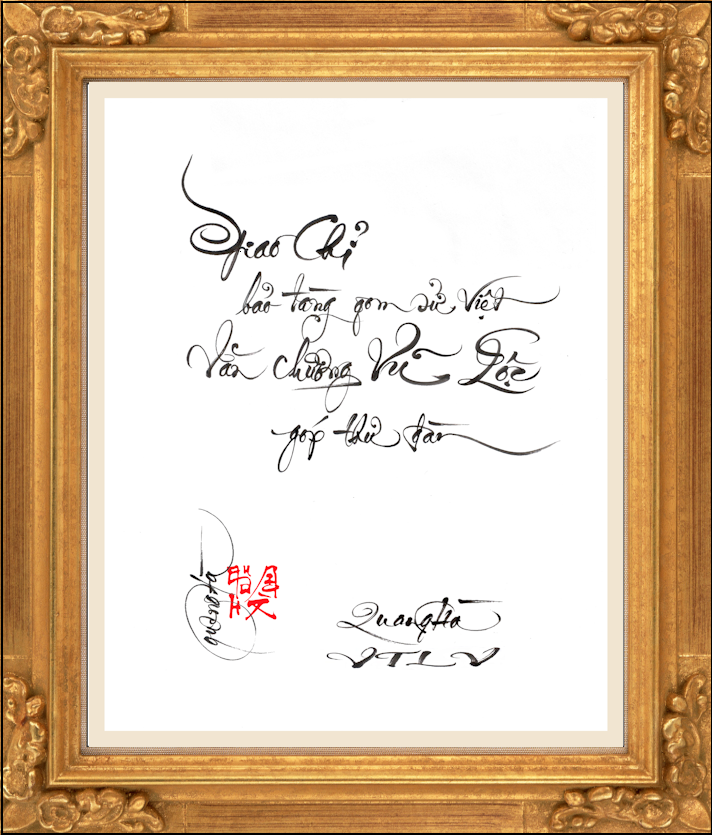 Giao Chỉ
bảo tàng gom sử Việt
Văn chương Vũ Lộc
góp thư đàn
Quang Hà
VTLV